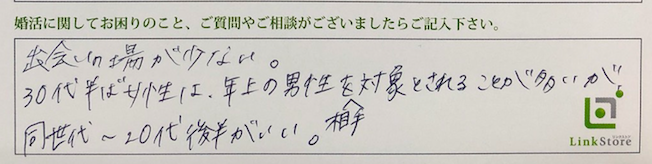 婚活に関してお困りのこと、ご質問やご相談がございましたらご記入下さい。
出会いの場が少ない。
30代半ば女性は、年上の男性を対象とされることが多いが、
同世代〜20代後半がいい。相手
LinkStore